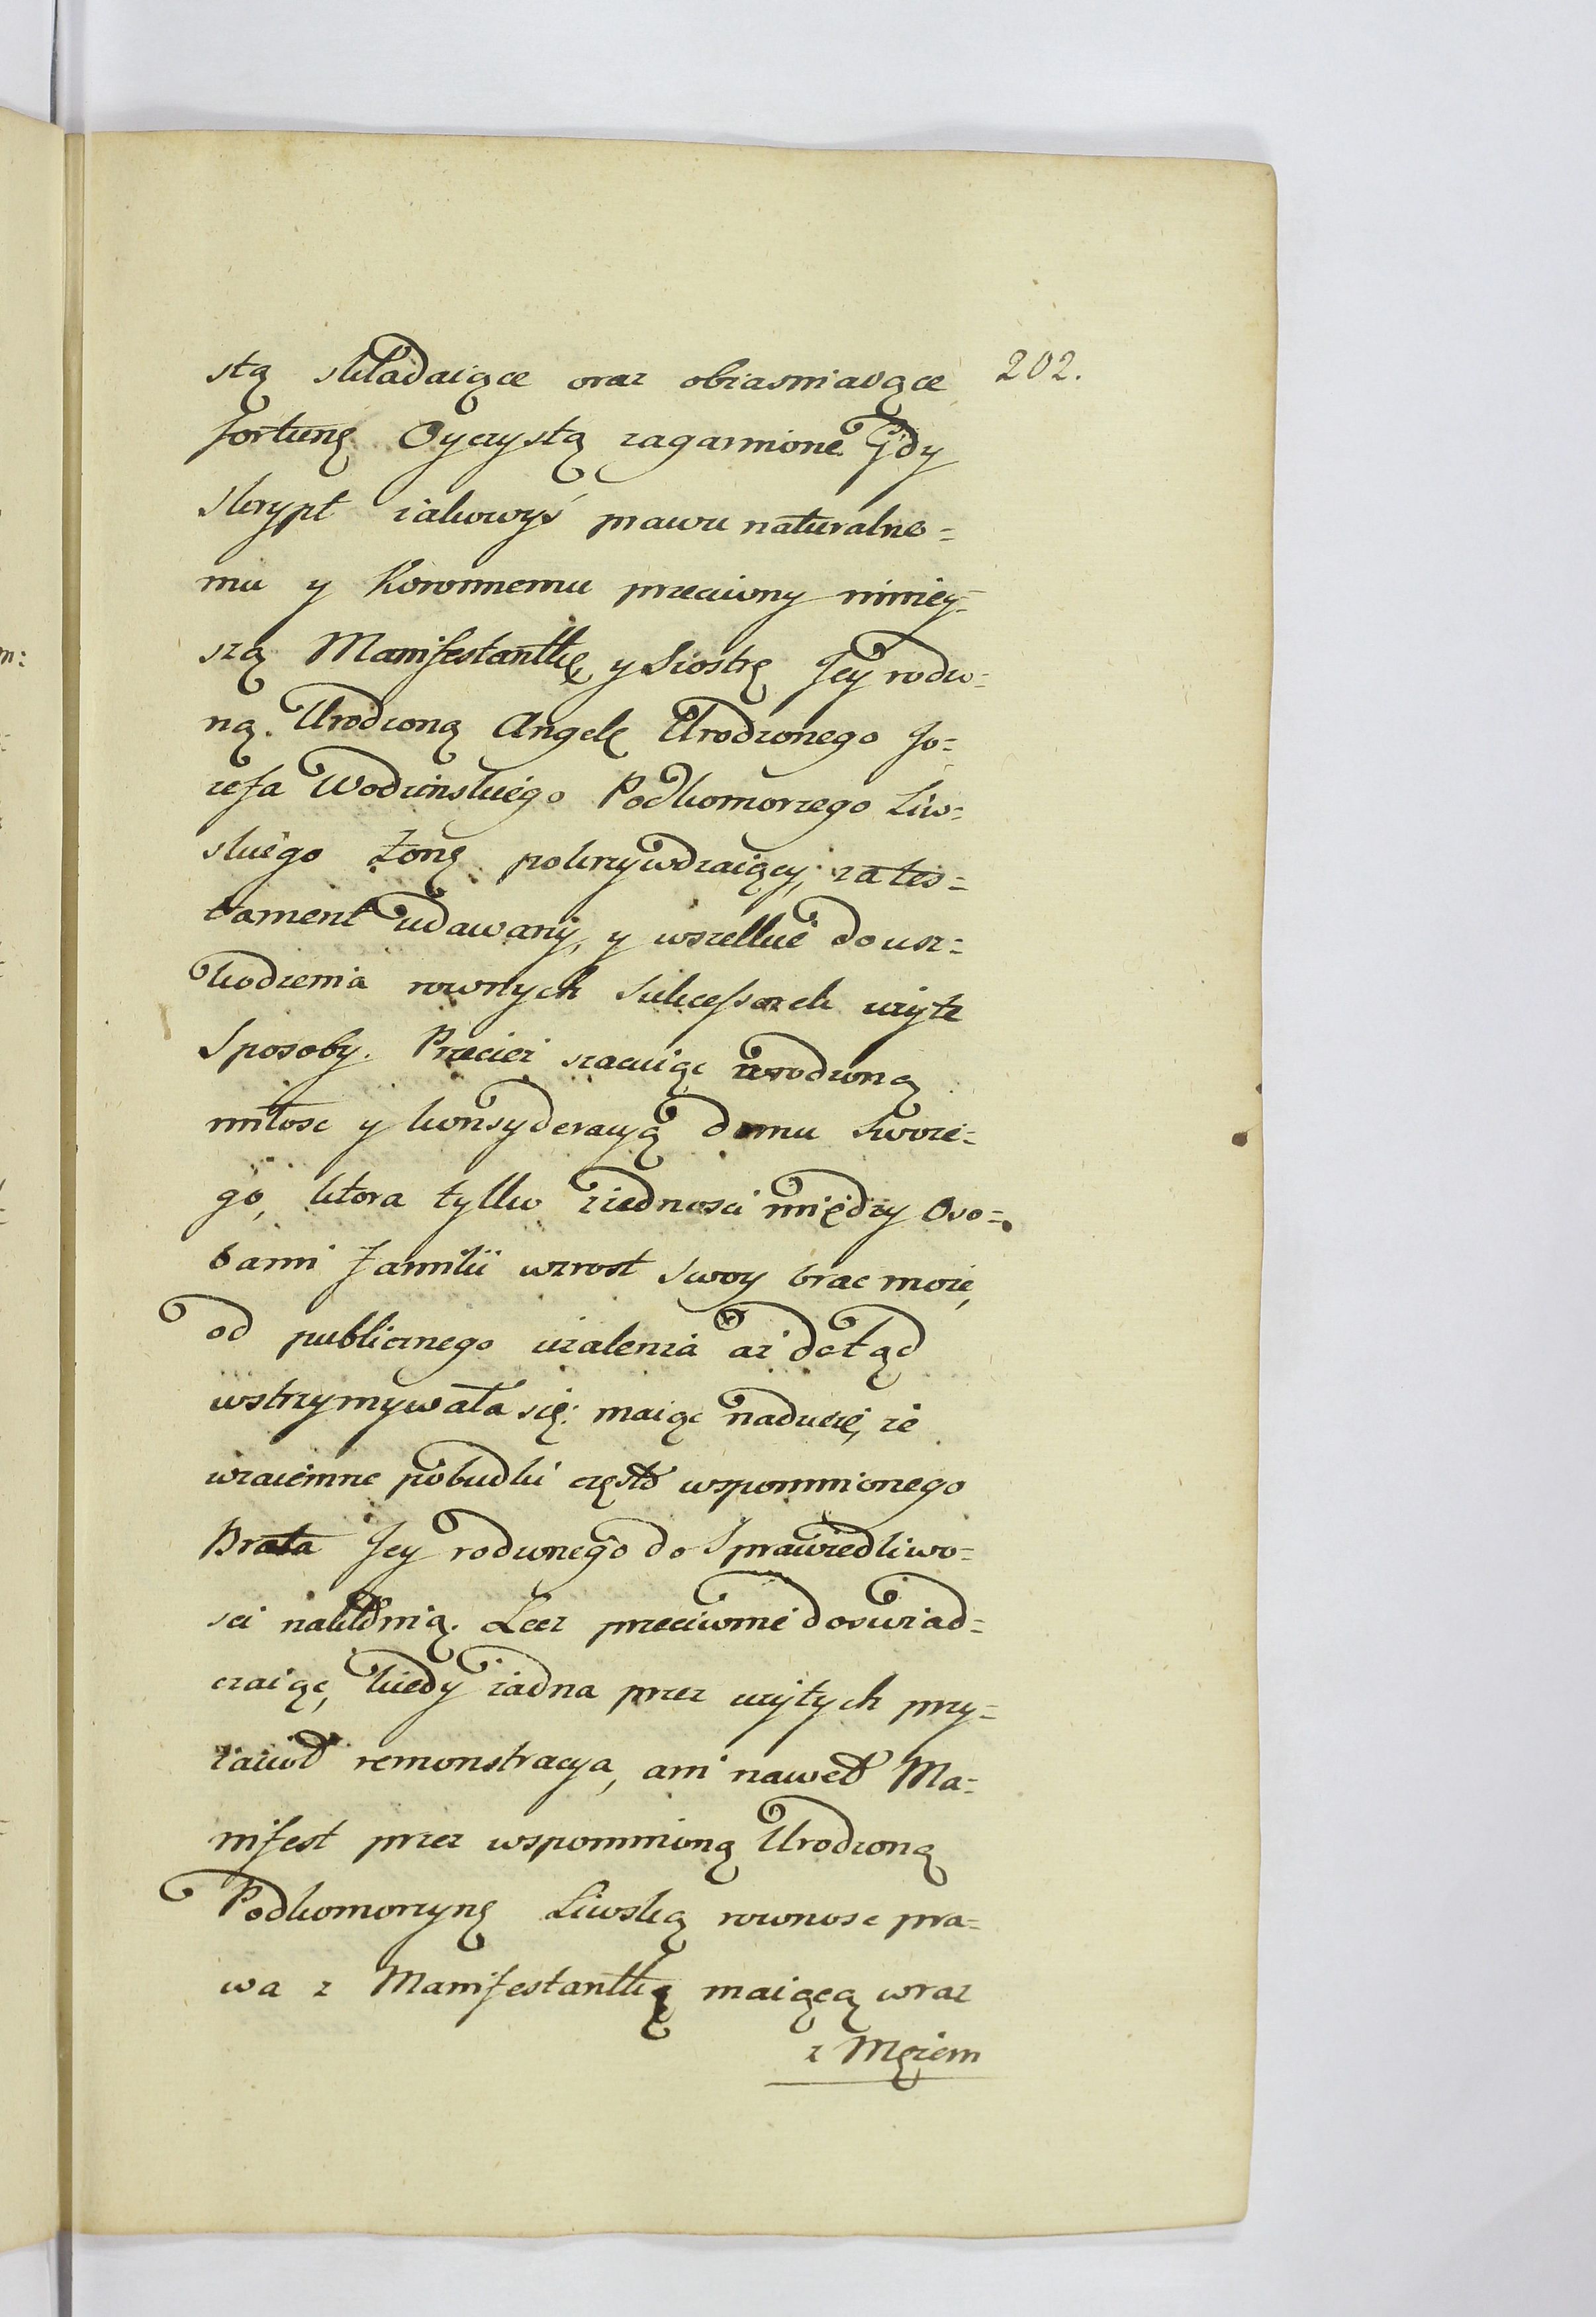 202.
stą składaiące oraz obiasniaiące
fortunę Oyczystą zagarnione. Gdy
skrypt iakowyś prawu naturalne=
mu y Koronnemu przeciwny niniey=
szą Manifestantkę y Siostrę Jey rodzo=
ną. Urodzoną Angelę Urodzonego Jo=
zefa Wodzinskiego Podkomorzego Liw=
skiego Zonę pokrzywdzaiący, za tes=
tament udawany, y wszelkie do usz=
kodzenia rownych Sukcessorek użyte
Sposoby. Przecież szacuiąc wrodzoną
miłosc y konsyderacyą domu Swoie=
go, ktora tylko ziednosci między Oso=
bami Familii wzrost swoy brac może,
od publicznego użalenia aż dotąd
wstrzymywała się: maiąc nadzieię, że
wzaiemne pobudki często wspomnionego
Brata Jey rodzonego do Sprawiedliwo=
sci nakłonią. Lecz przeciwnie doswiad=
czaiąc, kiedy żadna przez użytych przy=
iacioł remonstracya, ani nawet Ma=
nifest przez wspomnioną Urodzoną
Podkomorzynę Liwską rownosc pra=
wa z Manifestantką maiącą wraz
z Mężem